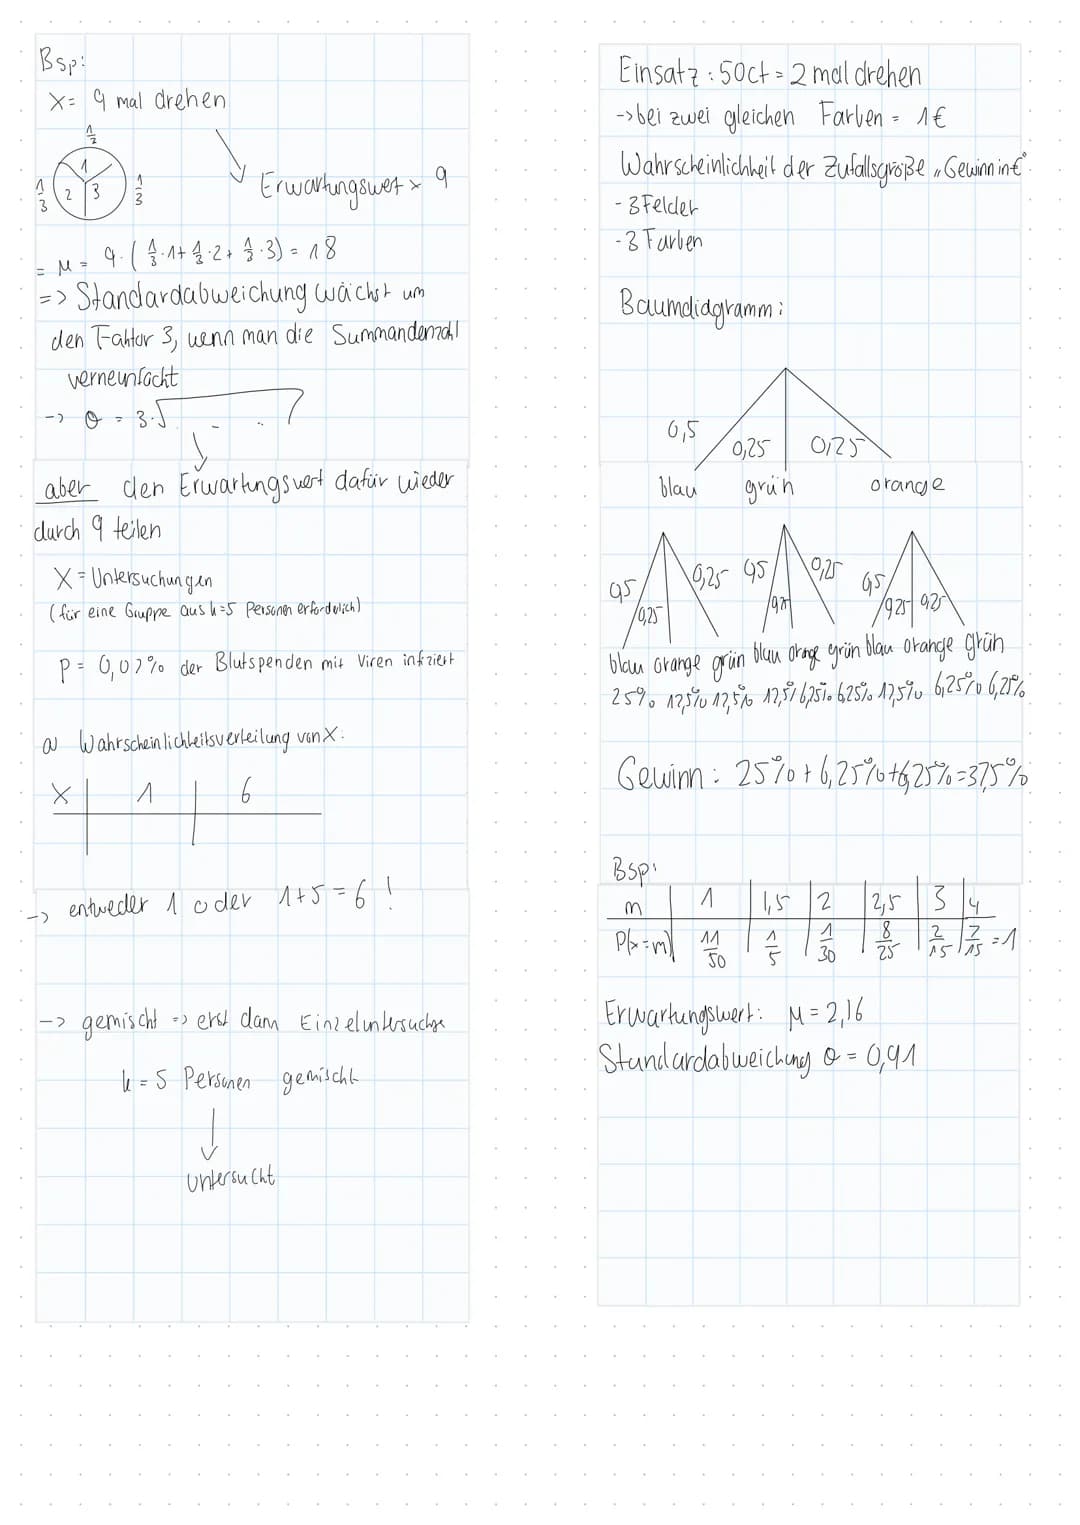 Bsp:
X = 9 mal drehen
1/2
1
2
3
1/3
1/3
Erwartungswet x 9
= μ = 9·(1/3·1+1/3·2+1/3·3) = 18
=> Standardabweichung wächst um
den Faktor 3, wenn man die Summandenzahl
verneunfacht
-> σ = 3·√
aber den Erwartungswert dafür wieder
durch 9 teilen
X = Untersuchungen
(für eine Gruppe aus k=5 Personen erforderlich)
p = 0,07% der Blutspenden mit Viren infiziert
a) Wahrscheinlichkeitsverteilung von X:
X | 1 | 6
-> entweder 1 oder 1+5=6!
-> gemischt => erst dann Einzeluntersuchge
k = 5 Personen gemischt
untersucht
Einsatz: 50ct = 2 mal drehen
-> bei zwei gleichen Farben = 1€
Wahrscheinlichkeit der Zufallsgröße „Gewinn in €"
- 3 Felder
- 3 Farben
Baumdiagramm:
0,5 0,25 0,25
blau grün orange
0,5 0,25 0,25 0,5 0,25 0,25 0,5 0,25 0,25
blau orange grün blau orange grün blau orange grün
25% 12,5% 12,5% 12,5% 6,25% 6,25% 12,5% 6,25% 6,25%
Gewinn: 25% + 6,25% + 6,25% = 37,5%
Bsp:
m | 1 | 1,5 | 2 | 2,5 | 3 | 4
P(x=m) | 11/50 | 1/5 | 1/30 | 8/25 | 2/15 | /15 = 1
Erwartungswert: μ = 2,16
Standardabweichung σ = 0,91